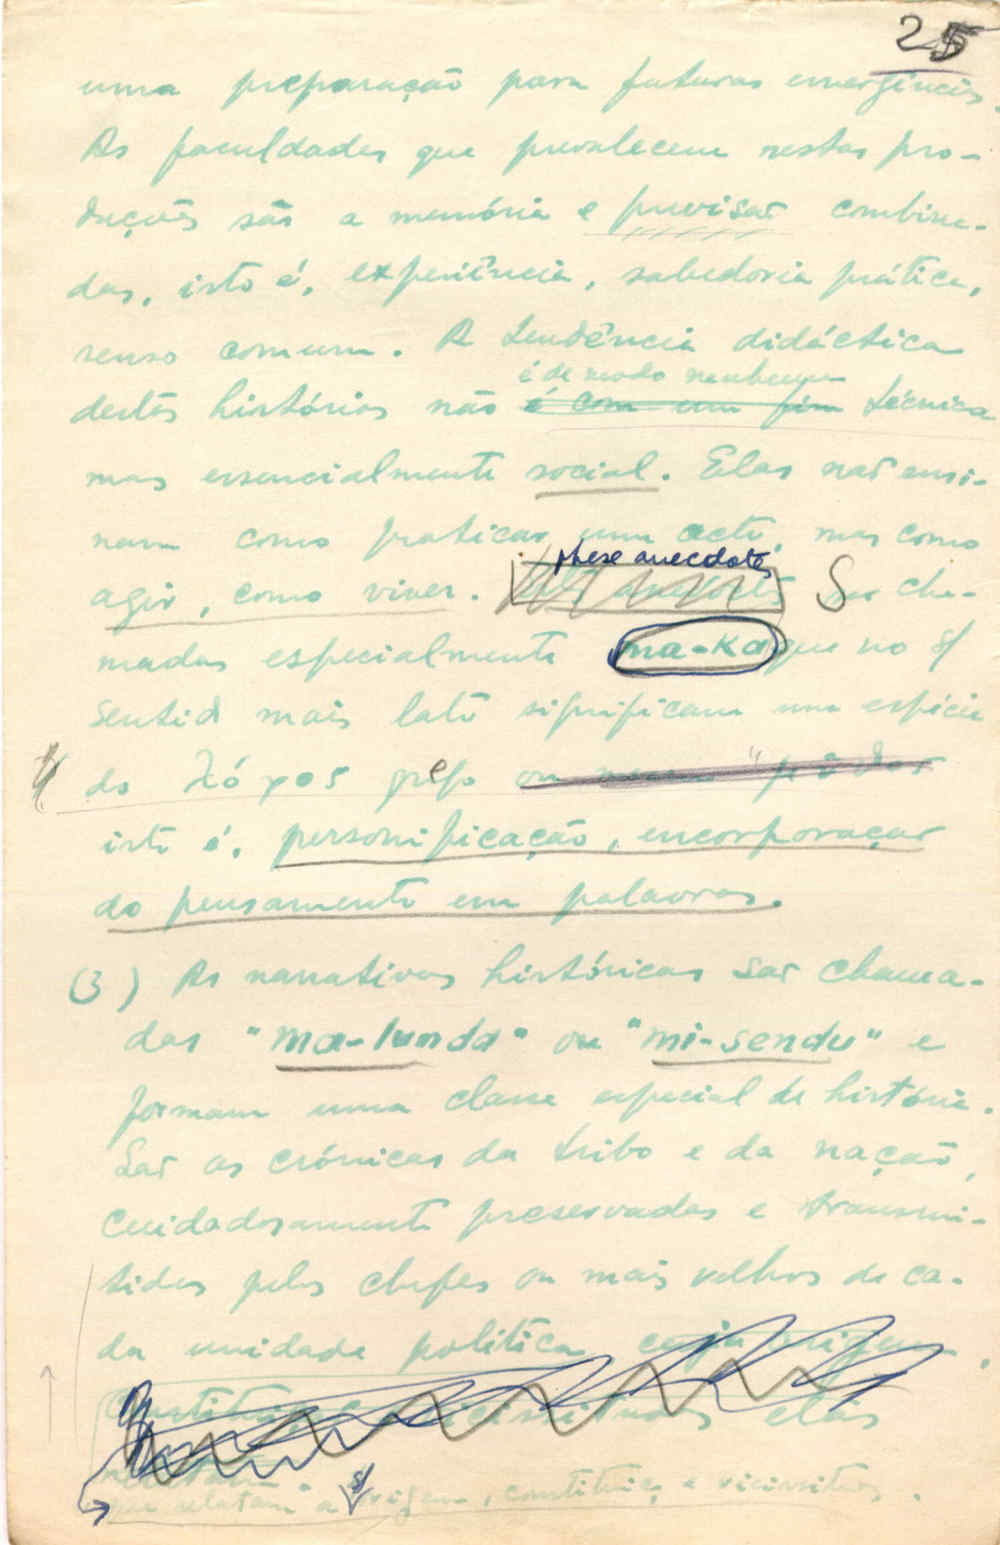 25
uma preparação para futuras emergências.
As faculdades que prevalecem nestas pro-
duções são a memória e previsão combina-
das, isto é, experiência, sabedoria prática,
senso comum. A tendência didáctica
é de modo nenhum
destas histórias não é com um fim técnica
mas essencialmente social. Elas não ensi-
nam como praticar um acto, mas como
these anecdotes
agir, como viver. São cha-
madas especialmente ma-ka que no
sentido mais lato significam uma espécie
do λόγος grego ou
isto é, personificação, encorporação
do pensamento em palavras.
(3) As narrativas históricas são chama-
das "ma-lunda" ou "mi-sendu" e
formam uma classe especial de história.
São as crónicas da tribo e da nação,
cuidadosamente preservadas e transmi-
tidas pelos chefes ou mais velhos de ca-
da unidade política cuja origem,
elas
relatam
que relatam a origem, constituição e vicissitudes.